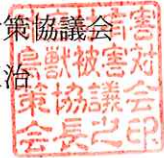 策協議会
治
鳥獣被害対
策協議会
会長之印